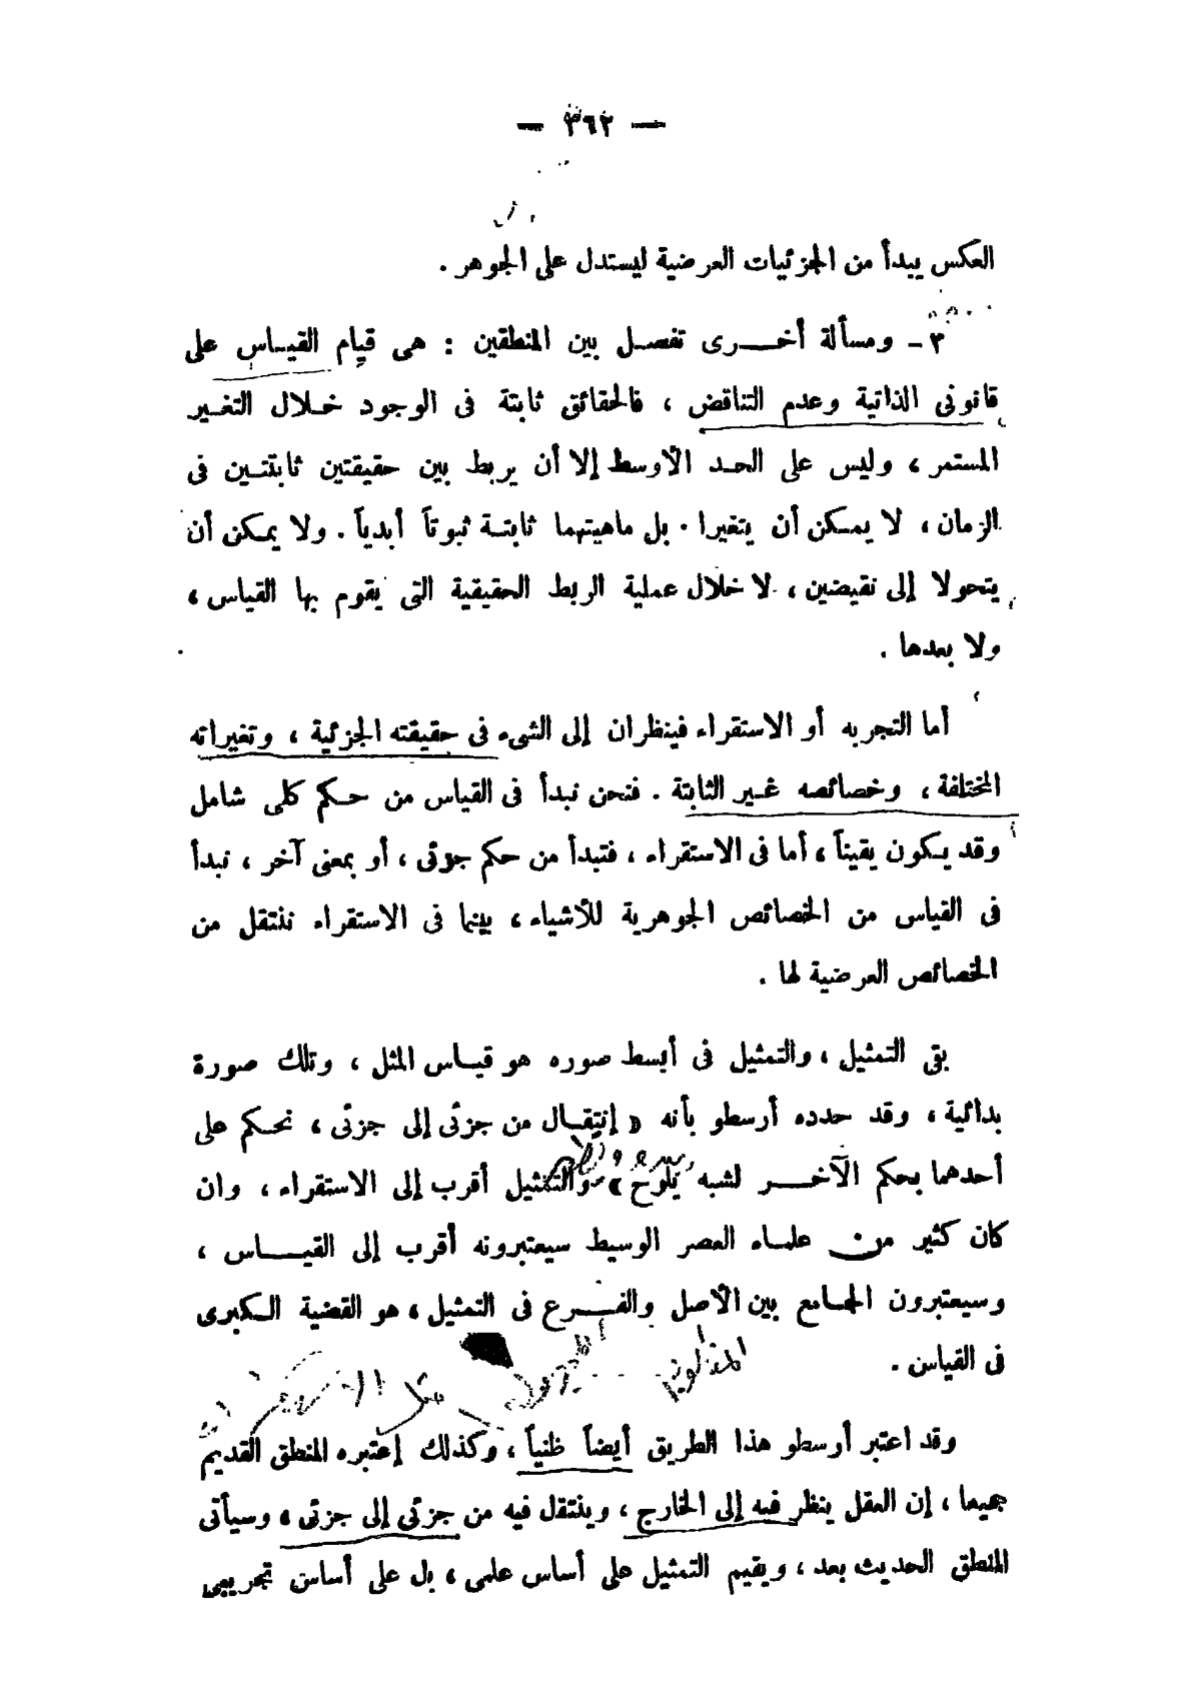 — ٣٦٢ —
العكس يبدأ من الجزئيات العرضية ليستدل على الجوهر .
٣ - ومسألة أخرى تفصل بين المنطقين : هى قيام القياس على
قانونى الذاتية وعدم التناقض ، فالحقائق ثابتة فى الوجود خلال التغير
المستمر ، وليس على الحد الأوسط إلا أن يربط بين حقيقتين ثابتتين فى
الزمان ، لا يمكن أن يتغيرا . بل ماهيتهما ثابتة ثبوتاً أبدياً . ولا يمكن أن
يتحولا إلى نقيضين ، لا خلال عملية الربط الحقيقية التى يقوم بها القياس ،
ولا بعدها .
أما التجربه أو الاستقراء فينظران إلى الشىء فى حقيقته الجزئية ، وتغيراته
المختلفة ، وخصائصه غير الثابتة . فنحن نبدأ فى القياس من حكم كلى شامل
وقد يكون يقيناً ، أما فى الاستقراء ، فتبدأ من حكم جزئى ، أو بمعنى آخر ، نبدأ
فى القياس من الخصائص الجوهرية للأشياء ، بينما فى الاستقراء ننتقل من
الخصائص العرضية لها .
بقى التمثيل ، والتمثيل فى أبسط صوره هو قياس المثل ، وتلك صورة
بدائية ، وقد حدده أرسطو بأنه « إنتقال من جزئى إلى جزئى ، نحكم على
أحدهما بحكم الآخر لشبه يلوح » والتمثيل أقرب إلى الاستقراء ، وان
كان كثير من علماء العصر الوسيط سيعتبرونه أقرب إلى القياس ،
وسيعتبرون الجامع بين الأصل والفرع فى التمثيل ، هو القضية الكبرى
فى القياس .
وقد اعتبر أرسطو هذا الطريق أيضاً ظنياً ، وكذلك إعتبره المنطق القديم
جميعا ، إن العقل ينظر فيه إلى الخارج ، وينتقل فيه من جزئى إلى جزئى ، وسيأتى
المنطق الحديث بعد ، ويقيم التمثيل على أساس علمى ، بل على أساس تجريبى